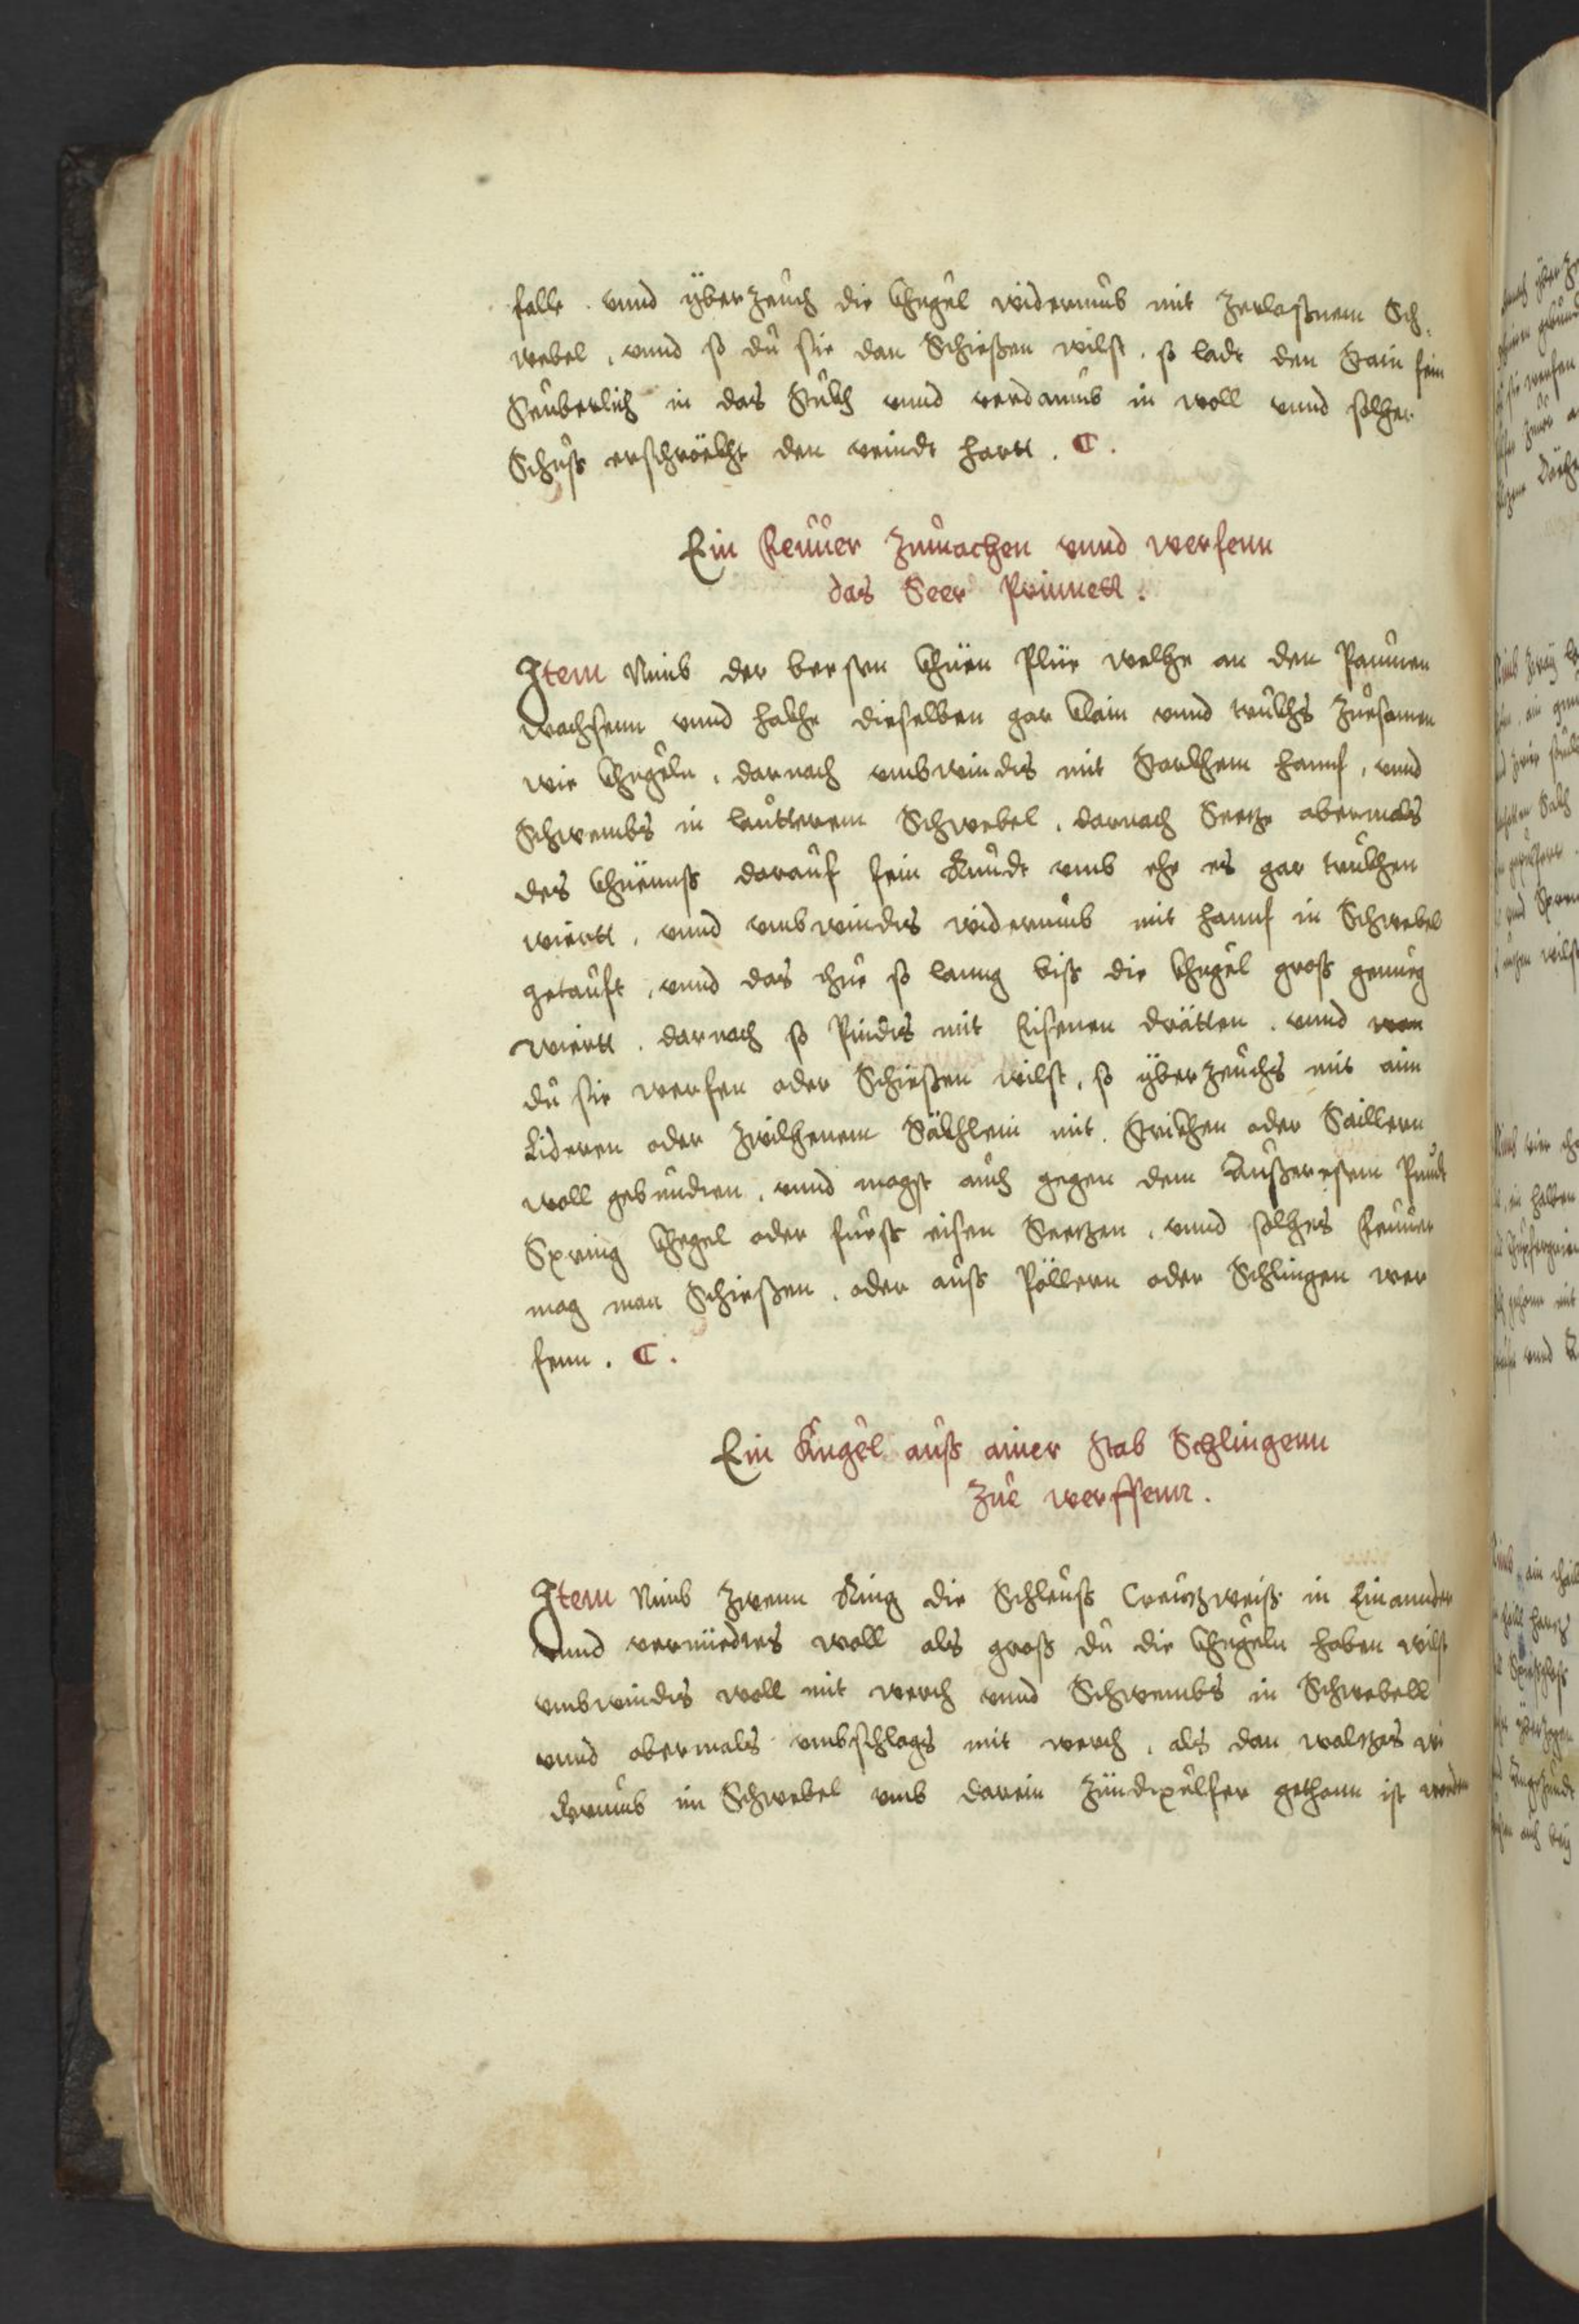 falle . vnnd yberzeuch die khugel widerumb mit zerlaßnem Sch:
webel , vnnd so du sie dan Schießen wilst . so lade den Stain fein
Seuberlich in das Stukh vnnd verdamb in woll vnnd solher
Schuß erschrökht den veindt hartt . C .
Ein Feuuer zumachen vnnd werfenn
das Seer Prinnett .
Item Nimb der khüen Plüe welhe an den Paumen
wachsenn vnnd hakhe dieselben gar klain vnnd trukhs zuesamen
wie khugeln , darnach vmbwindts mit Starkhem hannf , vnnd
Schwembs in lautterem Schwebel , darnach Seetze abermals
des khüenuß darauf fein Rundt vmb ehe es gar trukhen
wiertt , vnnd vmbwindts widerumb mit hannf in Schwebel
getauft , vnnd das thue so lanng biß die khugel groß genueg
wiertt . darnach so Pindts mit Eisenen drätten . vnnd wan
du sie werfen oder Schießen wilst , so yberzeuchs mit aim
Lideren oder zwilhenem Säkhlein mit Strikhen oder Saillern
woll gebundten , vnnd magst auch gegen dem Außeresten Pundt
Spring khegel oder fueß eisen Seetzen , vnnd solhes Feuuer
mag man Schießen , oder auß Pöllern oder Schlingen wer
fenn . C .
Ein Kugel auß ainer Stab Schlingenn
zue werffenn .
Item Nimb zwenn Ring die Schleuß Creutzweiß in Einannder
vnnd vernüedtes woll als groß du die khugeln haben wilst
vmbwindts woll mit werch vnnd Schwembs in Schwebell
vnnd abermals vmbschlags mit werch , als dan waltzes wi
derumb im Schwebel vmb darein zündtpulfer gethann ist